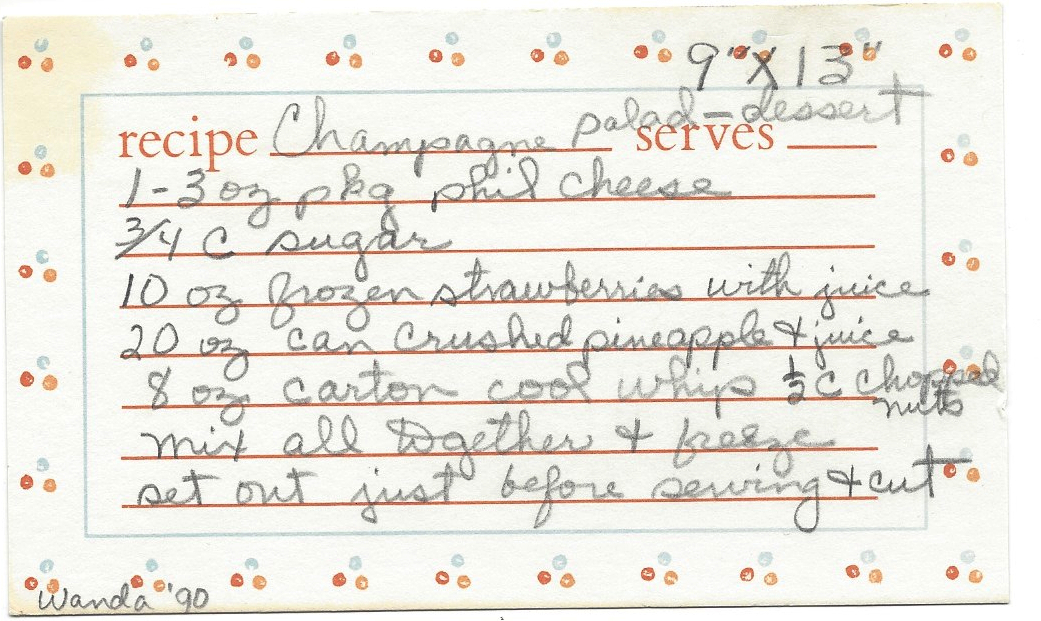 9"X13"
recipe Champagne salad-dessert serves
1-3 oz pkg phil cheese
3/4 C sugar
10 oz frozen strawberries with juice
20 oz can crushed pineapple & juice
8 oz carton cool whip 1/2 C chopped
nuts
mix all together & freeze
set out just before serving & cut
Wanda '90